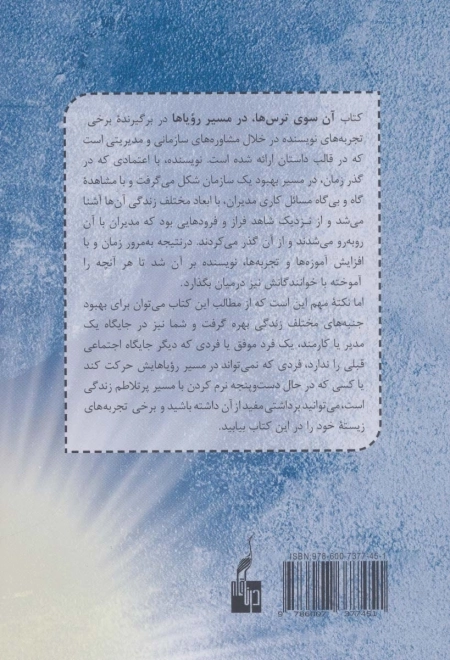 کتاب آن سوی ترس‌ها، در مسیر رؤیاها در برگیرندهٔ برخی
تجربه‌های نویسنده در خلال مشاوره‌های سازمانی و مدیریتی است
که در قالب داستان ارائه شده است. نویسنده، با اعتمادی که در
گذر زمان، در مسیر بهبود یک سازمان شکل می‌گرفت و با مشاهدهٔ
گاه و بی‌گاه مسائل کاری مدیران، با ابعاد مختلف زندگی آن‌ها آشنا
می‌شد و از نزدیک شاهد فراز و فرودهایی بود که مدیران با آن
روبه‌رو می‌شدند و از آن گذر می‌کردند. درنتیجه به‌مرور زمان و با
افزایش آموزه‌ها و تجربه‌ها، نویسنده بر آن شد تا هر آنچه را
آموخته با خوانندگانش نیز درمیان بگذارد.
اما نکتهٔ مهم این است که از مطالب این کتاب می‌توان برای بهبود
جنبه‌های مختلف زندگی بهره گرفت و شما نیز در جایگاه یک
مدیر یا کارمند، یک فرد موفق یا فردی که دیگر جایگاه اجتماعی
قبلی را ندارد، فردی که نمی‌تواند در مسیر رؤیاهایش حرکت کند
یا کسی که در حال دست‌وپنجه نرم کردن با مسیر پرتلاطم زندگی
است، می‌توانید برداشتی مفید از آن داشته باشید و برخی تجربه‌های
زیستهٔ خود را در این کتاب بیابید.
ISBN: 978-600-7377-46-1
9 786007 377461